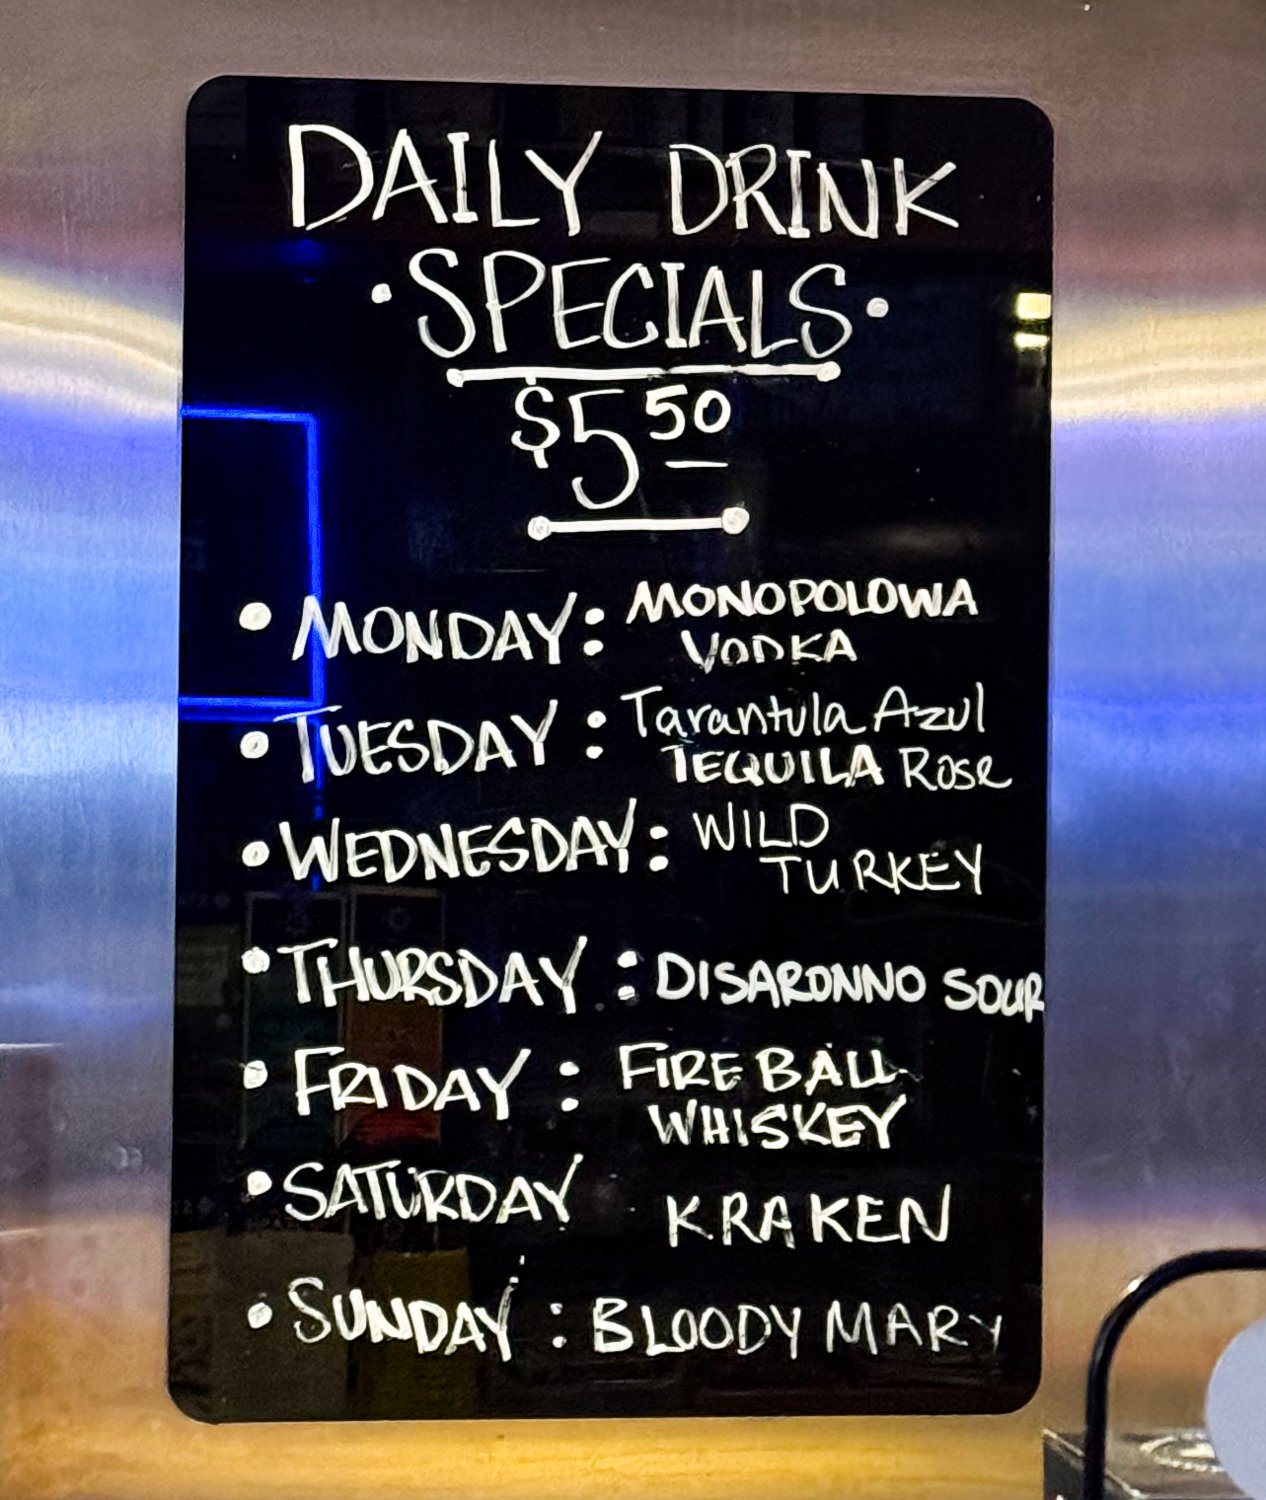 DAILY DRINK
·SPECIALS·
$5 50
• MONDAY: MONOPOLOWA
VODKA
• TUESDAY: Tarantula Azul
TEQUILA Rose
• WEDNESDAY: WILD
TURKEY
• THURSDAY: DISARONNO SOUR
• FRIDAY: FIREBALL
WHISKEY
• SATURDAY KRAKEN
• SUNDAY: BLOODY MARY